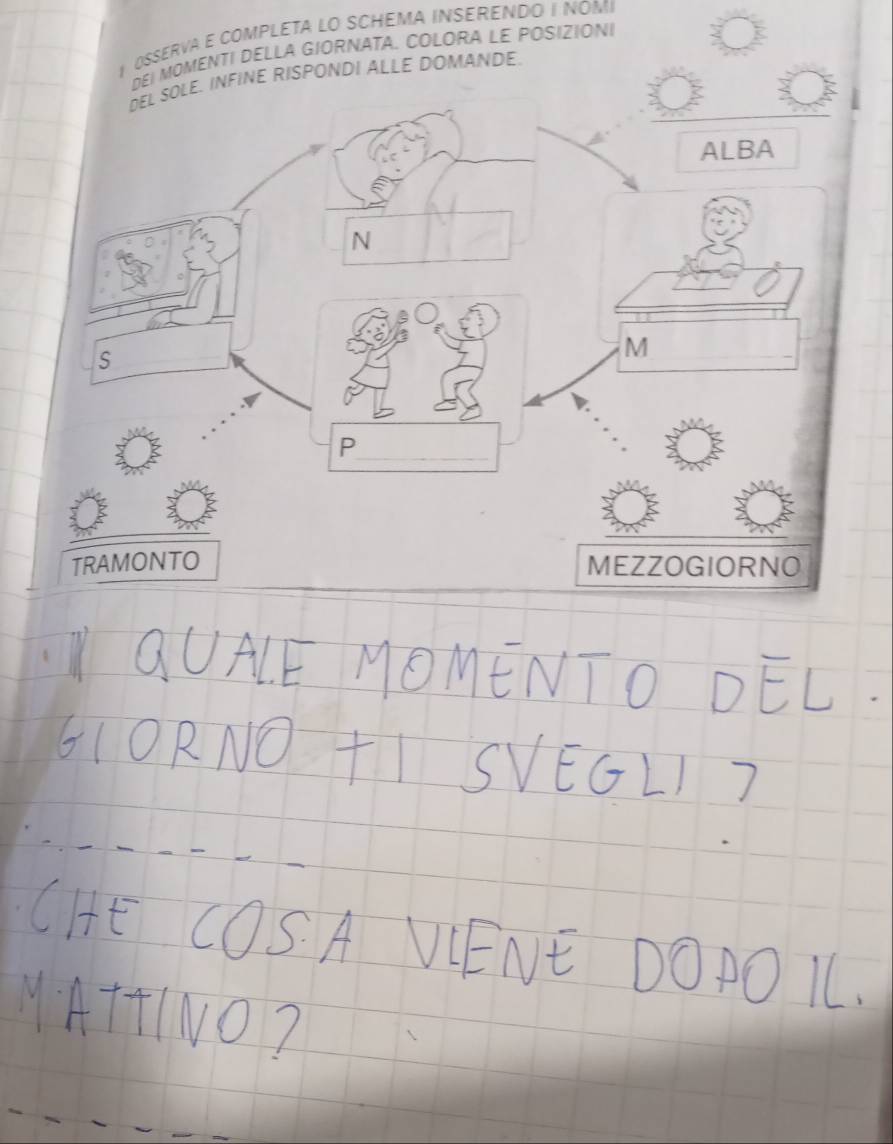 1 OSSERVA E COMPLETA LO SCHEMA INSERENDO I NOMI
DEI MOMENTI DELLA GIORNATA. COLORA LE POSIZIONI
DEL SOLE. INFINE RISPONDI ALLE DOMANDE.
ALBA
N
S
M
P
TRAMONTO
MEZZOGIORNO
IN QUALE MOMENTO DEL
GIORNO TI SVEGLI?
CHE COSA VIENE DOPO IL
MATTINO?